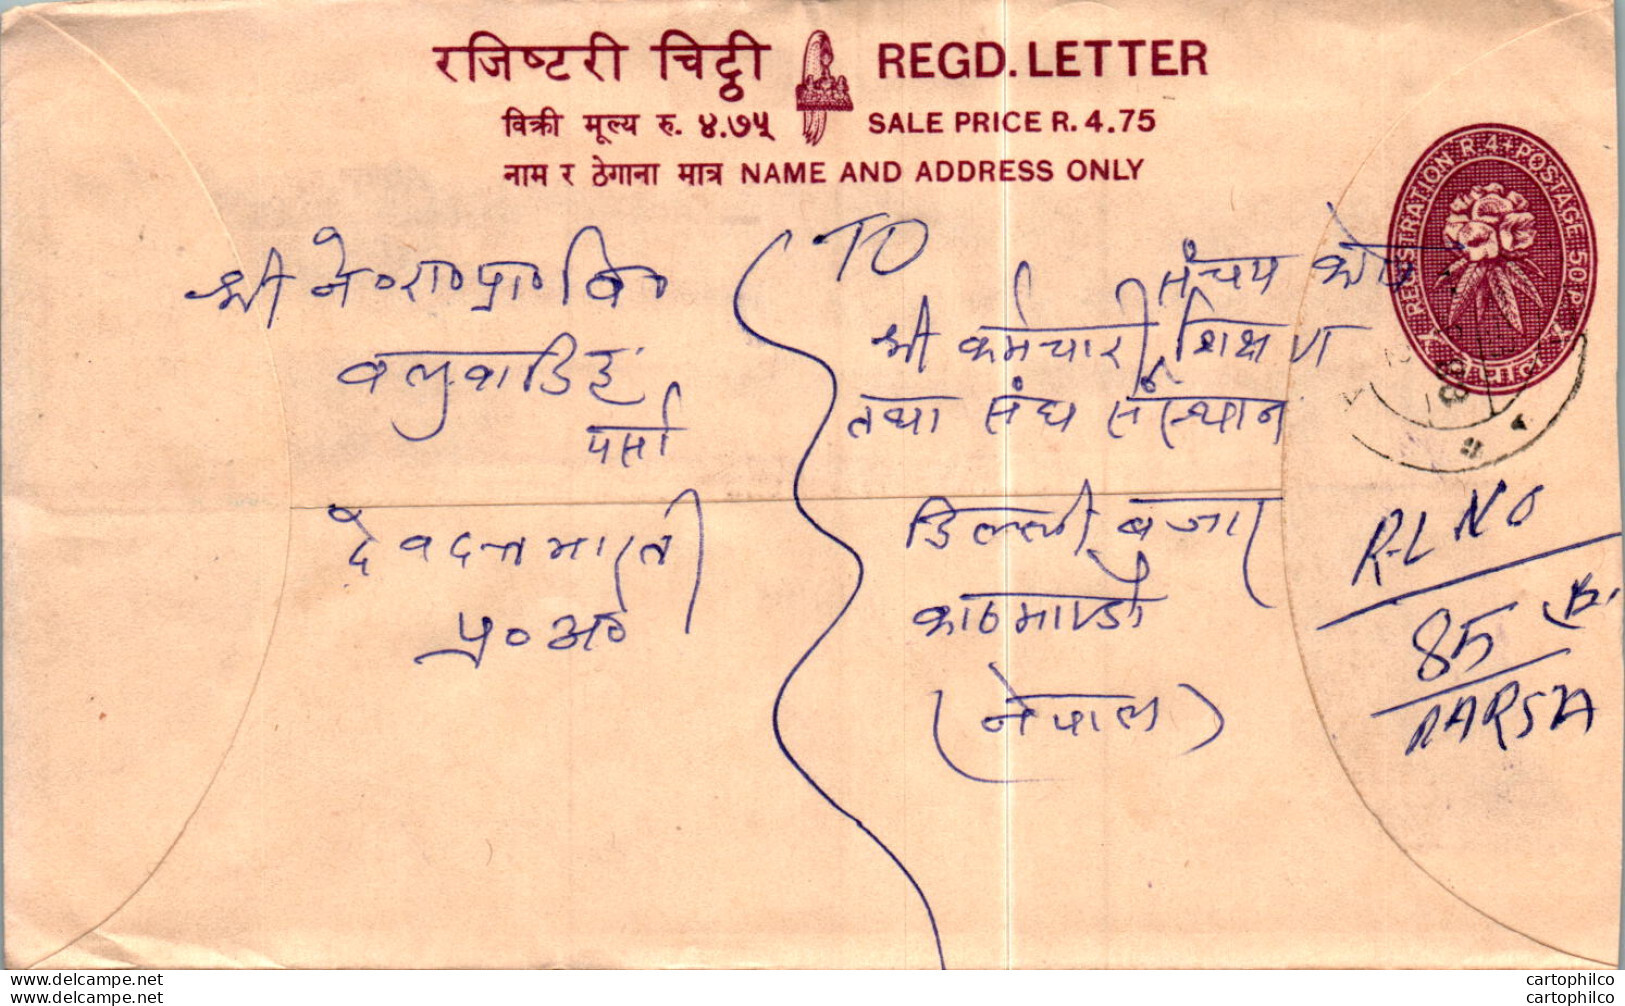 रजिष्टरी चिट्ठी REGD. LETTER
विक्री मूल्य रु. ४.७५ SALE PRICE R. 4.75
नाम र ठेगाना मात्र NAME AND ADDRESS ONLY
REGISTRATION R.4+POSTAGE 50 P.
श्री ने०रा०प्रा०वि०
पर्सा
देवदत्त भारती
प्र०अ०
TO
संचय कोष
श्री कर्मचारी, शिक्षण
तथा संघ संस्थान
डिल्ली बजार
काठमाण्डौ
(नेपाल)
R-L NO
85
PARSA
delcampe.net
delcampe.net
cartophilco
cartophilco